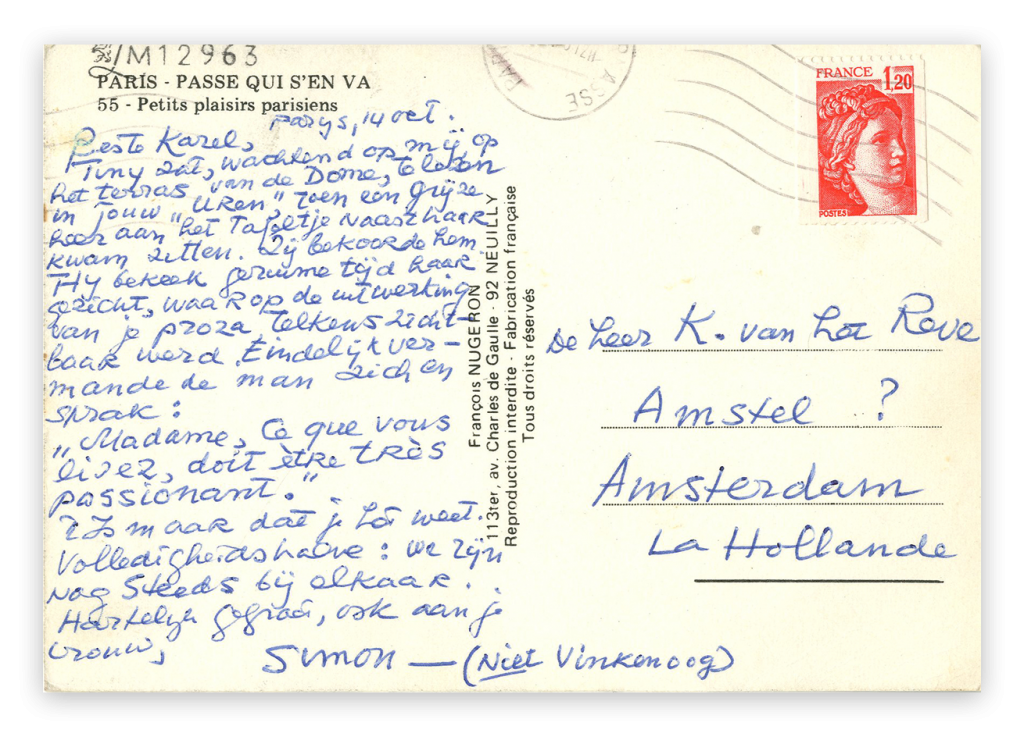 M12963
PARIS - PASSE QUI S'EN VA
55 - Petits plaisirs parisiens
Parys, 14 oct.
Beste Karel,
Tiny zat, wachtend op mij, op
het terras van de Dome, te lezen
in jouw "Uren" toen een grijze
heer aan het Tafeltje naast haar
kwam zitten. Zij bekoorde hem.
Hy bekeek geruime tijd haar
gezicht, waarop de uitwerking
van je proza telkens zicht-
baar werd. Eindelijk ver-
mande de man zich en
sprak:
"Madame, Ce que vous
lisez, doit être très
passionant."
't Is maar dat je het weet.
Volledigheidshalve: we zijn
nog steeds bij elkaar.
Hartelijk gegroet, ook aan je
vrouw,
Simon — (Niet Vinkenoog)
François NUGERON
113ter, av. Charles de Gaulle - 92 NEUILLY
Reproduction interdite - Fabrication française
Tous droits réservés
FRANCE 1,20
POSTES
De heer K. van het Reve
Amstel ?
Amsterdam
La Hollande